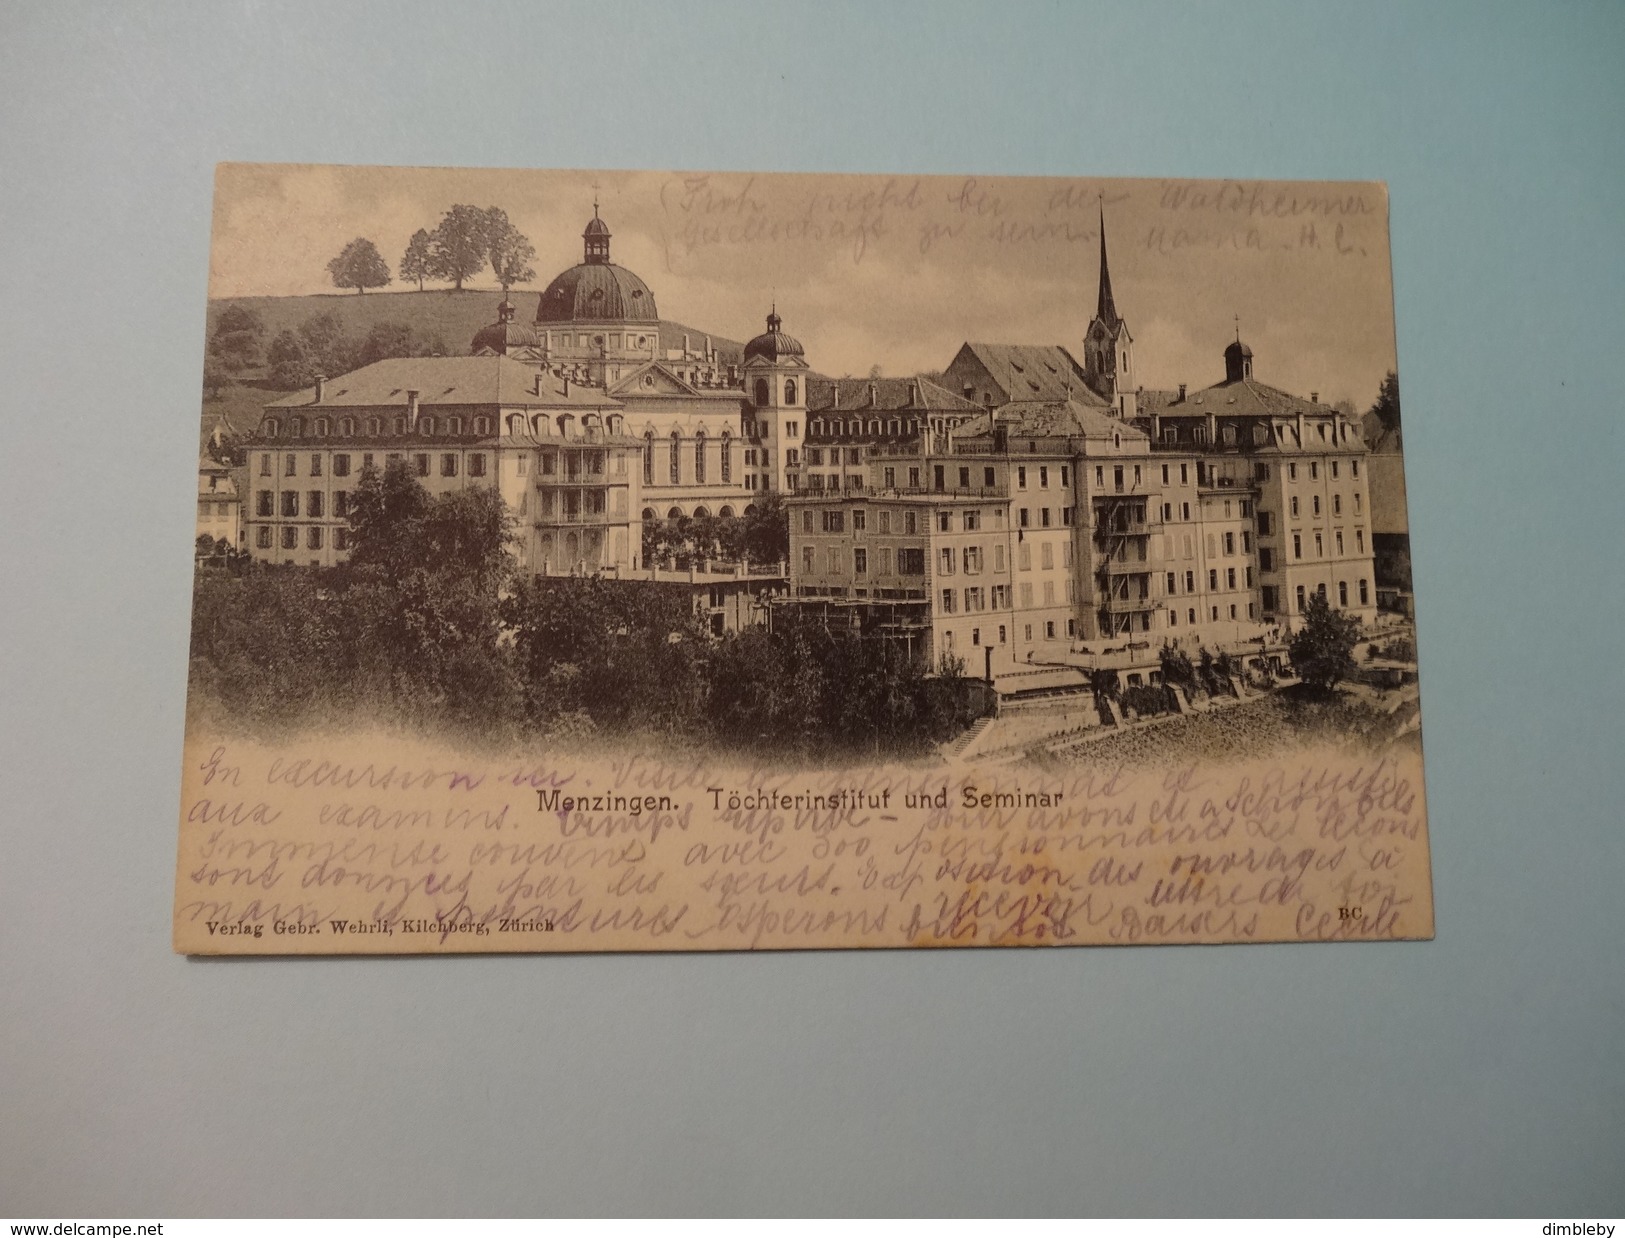 Froh nicht bei der Waldheimer
Gesellschaft zu sein. H. C.
En excursion ici. Visité le pensionnat et assisté
Menzingen. Töchterinstitut und Seminar
aux examens. Temps superbe - jour avons été à Schönfels
Immense couvent avec 300 pensionnaires Les leçons
sont données par les sœurs. Exposition des ouvrages à
main et peintures espérons recevoir lettre de toi
bientôt Baisers Cécile
Verlag Gebr. Wehrli, Kilchberg, Zürich
BC
www.delcampe.net
dimbleby